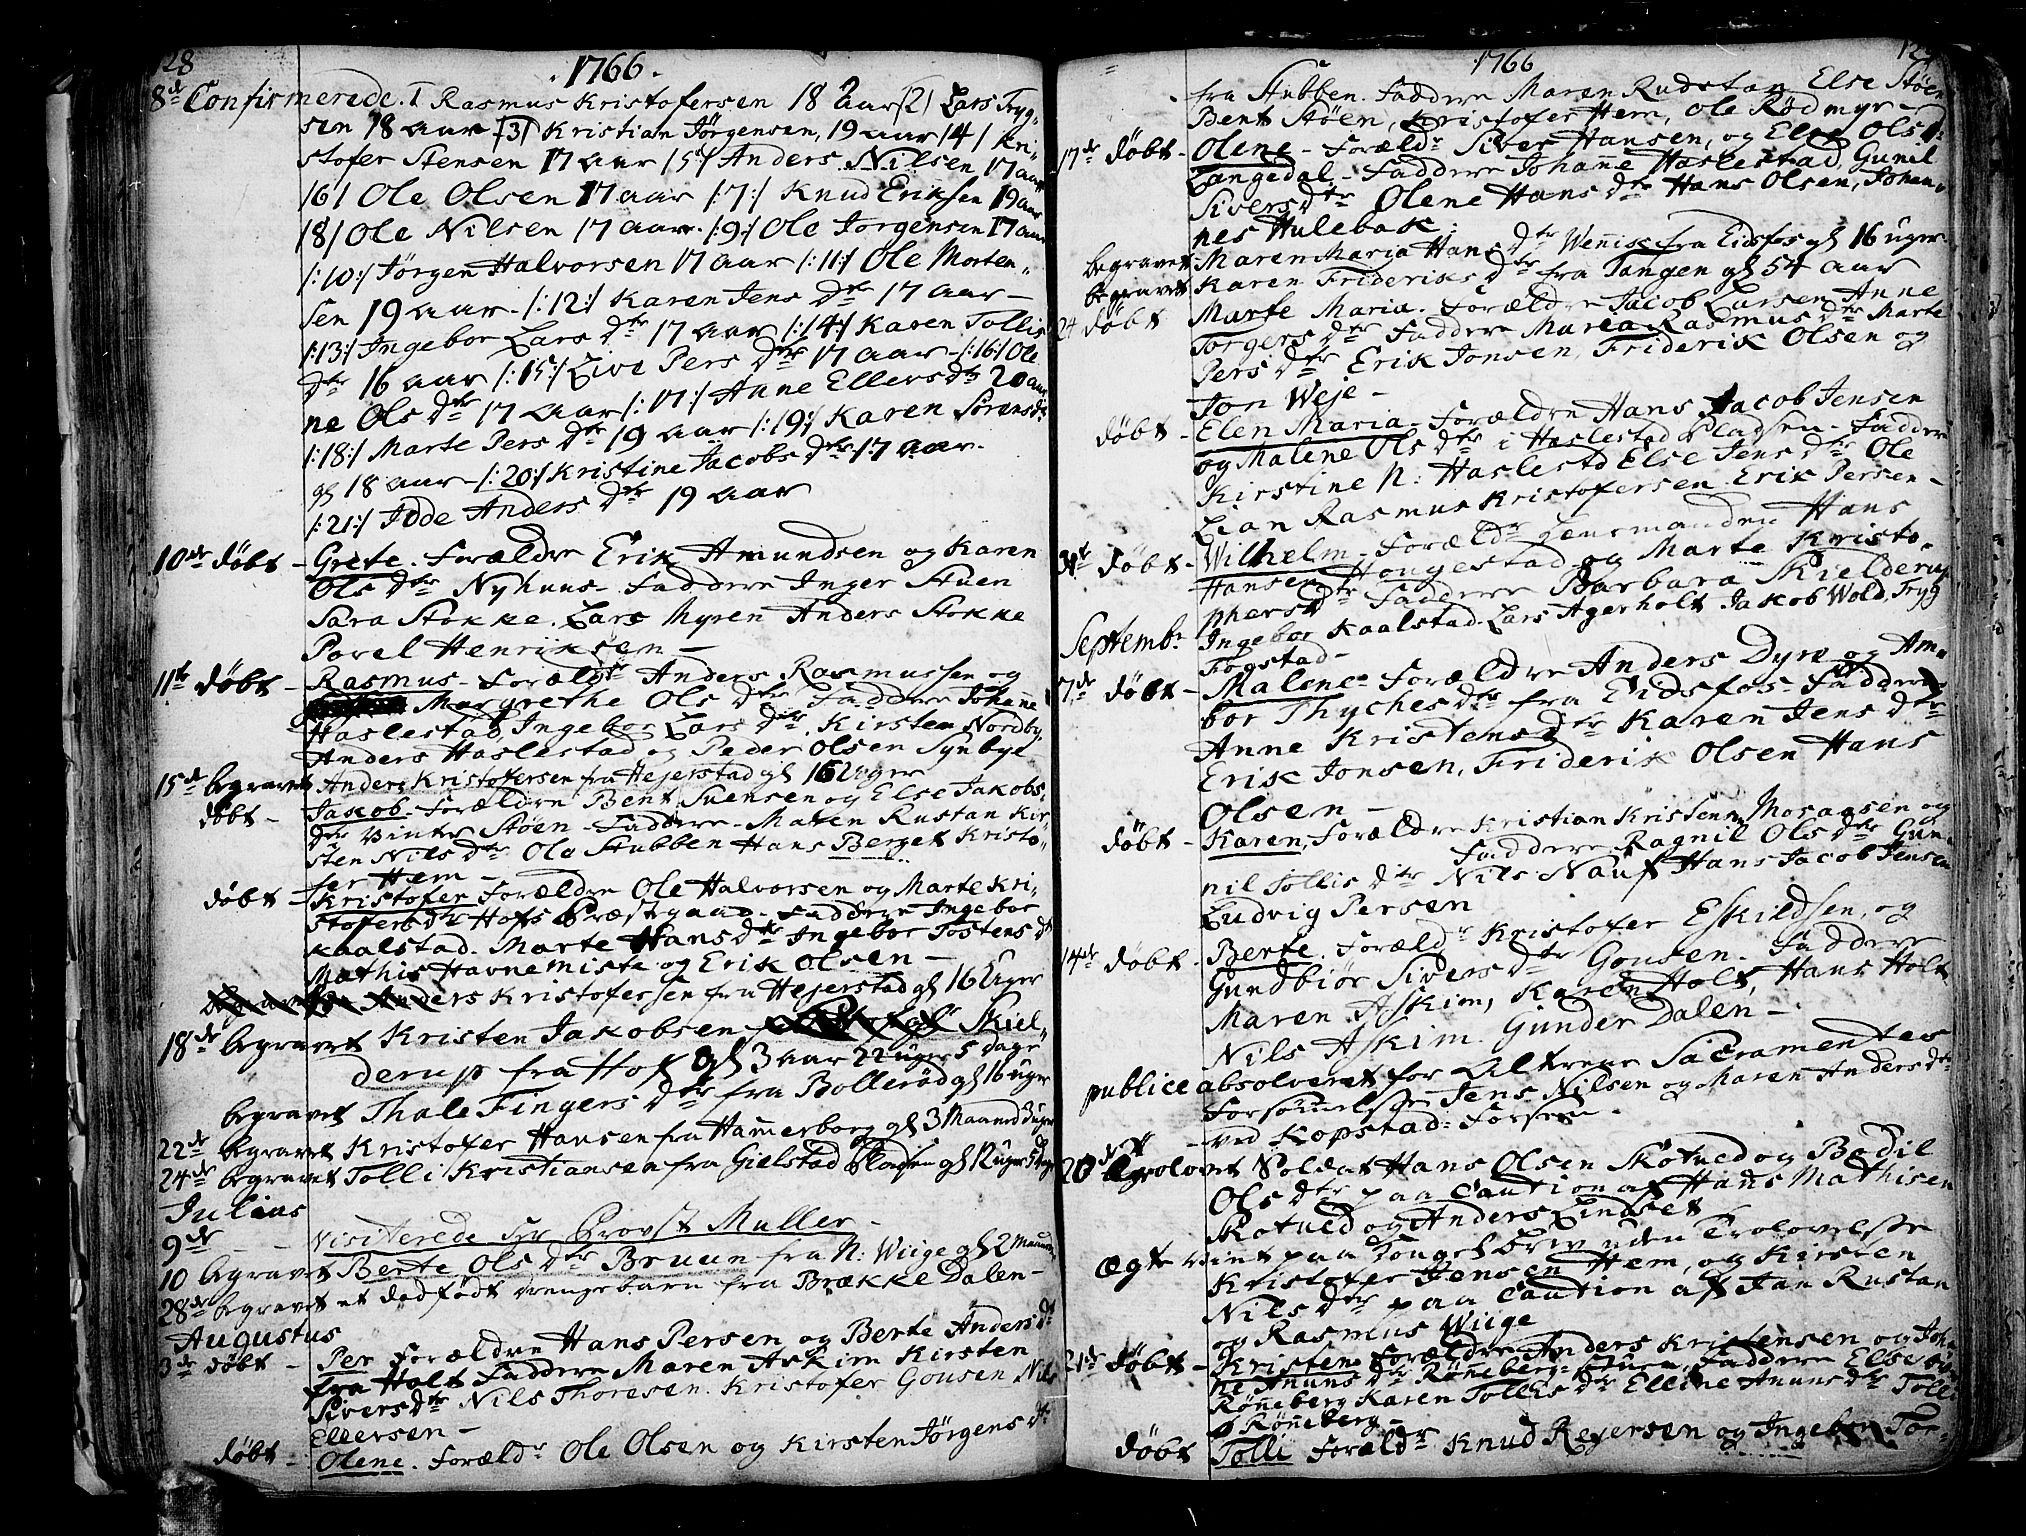 128
1766.
8de Confirmerede. 1 Rasmus Kristofersen 18 Aar /2/ Lars Tryg-
sen 18 aar /3/ Kristian Jörgensen, 19 aar /4/ Kri-
stofer Stensen 17 aar /5/ Anders Nilsen 17 aar
/6/ Ole Olsen 17 aar /:7:/ Knud Eriksen 19 aar
/8/ Ole Nilsen 17 aar. /:9:/ Ole Jorgensen 17 aar
/:10:/ Jörgen Halvorsen 17 aar /:11:/ Ole Morten-
sen 19 aar. /:12:/ Karen Jens Dtr 17 aar-
/:13:/ Ingebor Lars Dtr 17 aar /:14:/ Karen Tollis
Dtr 16 aar /:15:/ Live Pers Dtr 17 aar-/:16:/ Ole
ne Ols Dtr 17 aar /:17:/ Anne Ellers Dtr 20 aar
/:18:/ Marte Pers Dtr 19 aar /:19:/ Karen Sörens Dtr
gl 18 aar-/:20:/ Kristine Jacobs Dtr 17 aar.
/:21:/ Idde Anders Dtr 19 aar
10de döbt - Grete. Forældre Erik Amundsen og Karen
Ols Dtr Nyhuus- Faddere Inger Stuen
Sara Stokke. Lars Myren Anders Stokke
Povel Henriksen-
11te döbt - Rasmus- Foræld: Anders Rasmussen og
Margrethe Ols Dtr Faddere Johanne
Haslestad Ingebor Lars Dtr. Kirsten Nordby,
Anders Haslestad og Peder Olsen Synbye
15de begravet Anders Kristofersen fra Hejerstad gl 16 Uger
döbt - Jakob-Forældre Bent Suensen og Else Jakobs-
Dtr Vinter Stöen-Faddere-Maren Rustan Kir-
sten Nils Dtr Ole Stubben Hans Berget Kristo-
fer Hem-
döbt - Kristofer Forældre Ole Halvorsen og Marte Kri-
stofers Dtr Hofs Præstegaard-Faddere Ingebor
Kaalstad. Marte Hans Dtr Ingebor Tostens Dt
Mathis Havnemiste og Erik Olsen-
Anders Kristofersen fra Hejerstad gl 16 Uger
18de begravet Kristen Jakobsen Skiel-
derup fra Hof gl 3 aar 22 uger 5 dage
begravet Thale Fingers Dtr fra Bolleröd gl 16 uger
22de begravet Kristofer Hansen fra Hammerborg gl 3 Maaned 3 uger
24de begravet Tolli Kristiansen fra Gielstad Pladsen gl 12 uger 5 dage
Julius
9de - - Visiterede Hr Provst Muller-
10 begravet Berte Ols Dtr Bruun fra N: Wiige gl 2 Maaneder
28de begravet et dödfödt drengebarn fra Brække Dalen-
Augustus
3de döbt - Per Forældre Hans Persen og Berte Anders Dt
fra Holt Faddere Maren Askim Kirsten
Sivers Dtr Nils Thoresen. Kristofer Gousen Nils
Ellersen-
döbt - Olene. Foræld: Ole Olsen og Kirsten Jörgens Dtr
129
1766
fra Stubben. Faddere Maren Rudstan Else Stöen
Bent Stöen, Kristofer Hem, Ole Rödmyr-
17de döbt - Olene- Foræld: Siver Hansen, og Else Ols Dtr
Langedal-Faddere Johane Haslestad, Gunil
Sivers Dtr Olene Hans Dtr Hans Olsen, Johan-
nes Hulebak.
begravet Maren Maria Hans Dtr Wennise fra Eidsfos gl 16 uger
begravet Karen Frideriks Dtr fra Tangen gl 54 aar
24 döbt Marte Maria. Forældre Jacob Larsen Anne
Torgers Dtr Faddere Maria Rasmus Dtr Marte
Pers Dtr Erik Jonsen, Friderik Olsen og
Jon Weje-
döbt - Elen Maria- Forældre Hans Jacob Jensen
og Malene Ols Dtr i Haslestad Pladsen-Faddere
Kirstine N: Haslestd Else Jens Dtr Ole
Lian Rasmus Kristofersen Erik Persen-
31te döbt - Wilhelm-Foræld: Lensmanden Hans
Hansen Hougestad og Marte Kristo-
phers Dtr Faddere Barbara Skielderup
Ingebor Kaalstad. Lars Agerholt Jakob Wold, Tryg
Septembr
Fogstad-
7de döbt - Malene- Forældre Anders Dyre og Am-
bor Thyches Dtr fra Eidsfos-Faddere
Anne Kristens Dtr Karen Jens Dtr
Erik Jonsen, Friderik Olsen Hans
Olsen-
döbt - Karen, Forældre Kristian Kristen Moransen og
Faddere Ragnil Ols Dtr Gun-
nil Tollis Dtr Nils Nauf Hans Jacob Jensen
Ludvig Persen
14de döbt - Berte. Foræld: Kristofer Eskildsen, og
Gundbiör Sivers Dtr Gousen. Faddere
Maren Askim, Karen Holt, Hans Holt
Nils Askim. Gunder Dalen-
publice absolveret for Alterens Sacramentes
Forsömmelse Jens Nilsen og Maren Anders Dtr
ved Kopstad: Forsen.
20de Trolovet Soldat Hans Olsen Skotued og Bodil
Ols Dtr paa Caution af Hans Mathisen
Skotued og Anders Lindset
Ægte viet paa Konge Brev uden Trolovelse
Kristofer Jensen Hem, og Kirsten
Nils Dtr paa Caution af Jan Rustan
og Rasmus Wiige
21de döbt - Kristen Forældre Anders Kristensen og Joha-
ne Anuns Dtr Rönneberg-Eiere, Faddere Else
Rönneberg Karen Tollis Dtr Elline Anuns Dtr Tolli
Rönneberg-
döbt Tolli Foræld: Knud Reyersen og Ingebor Tor-